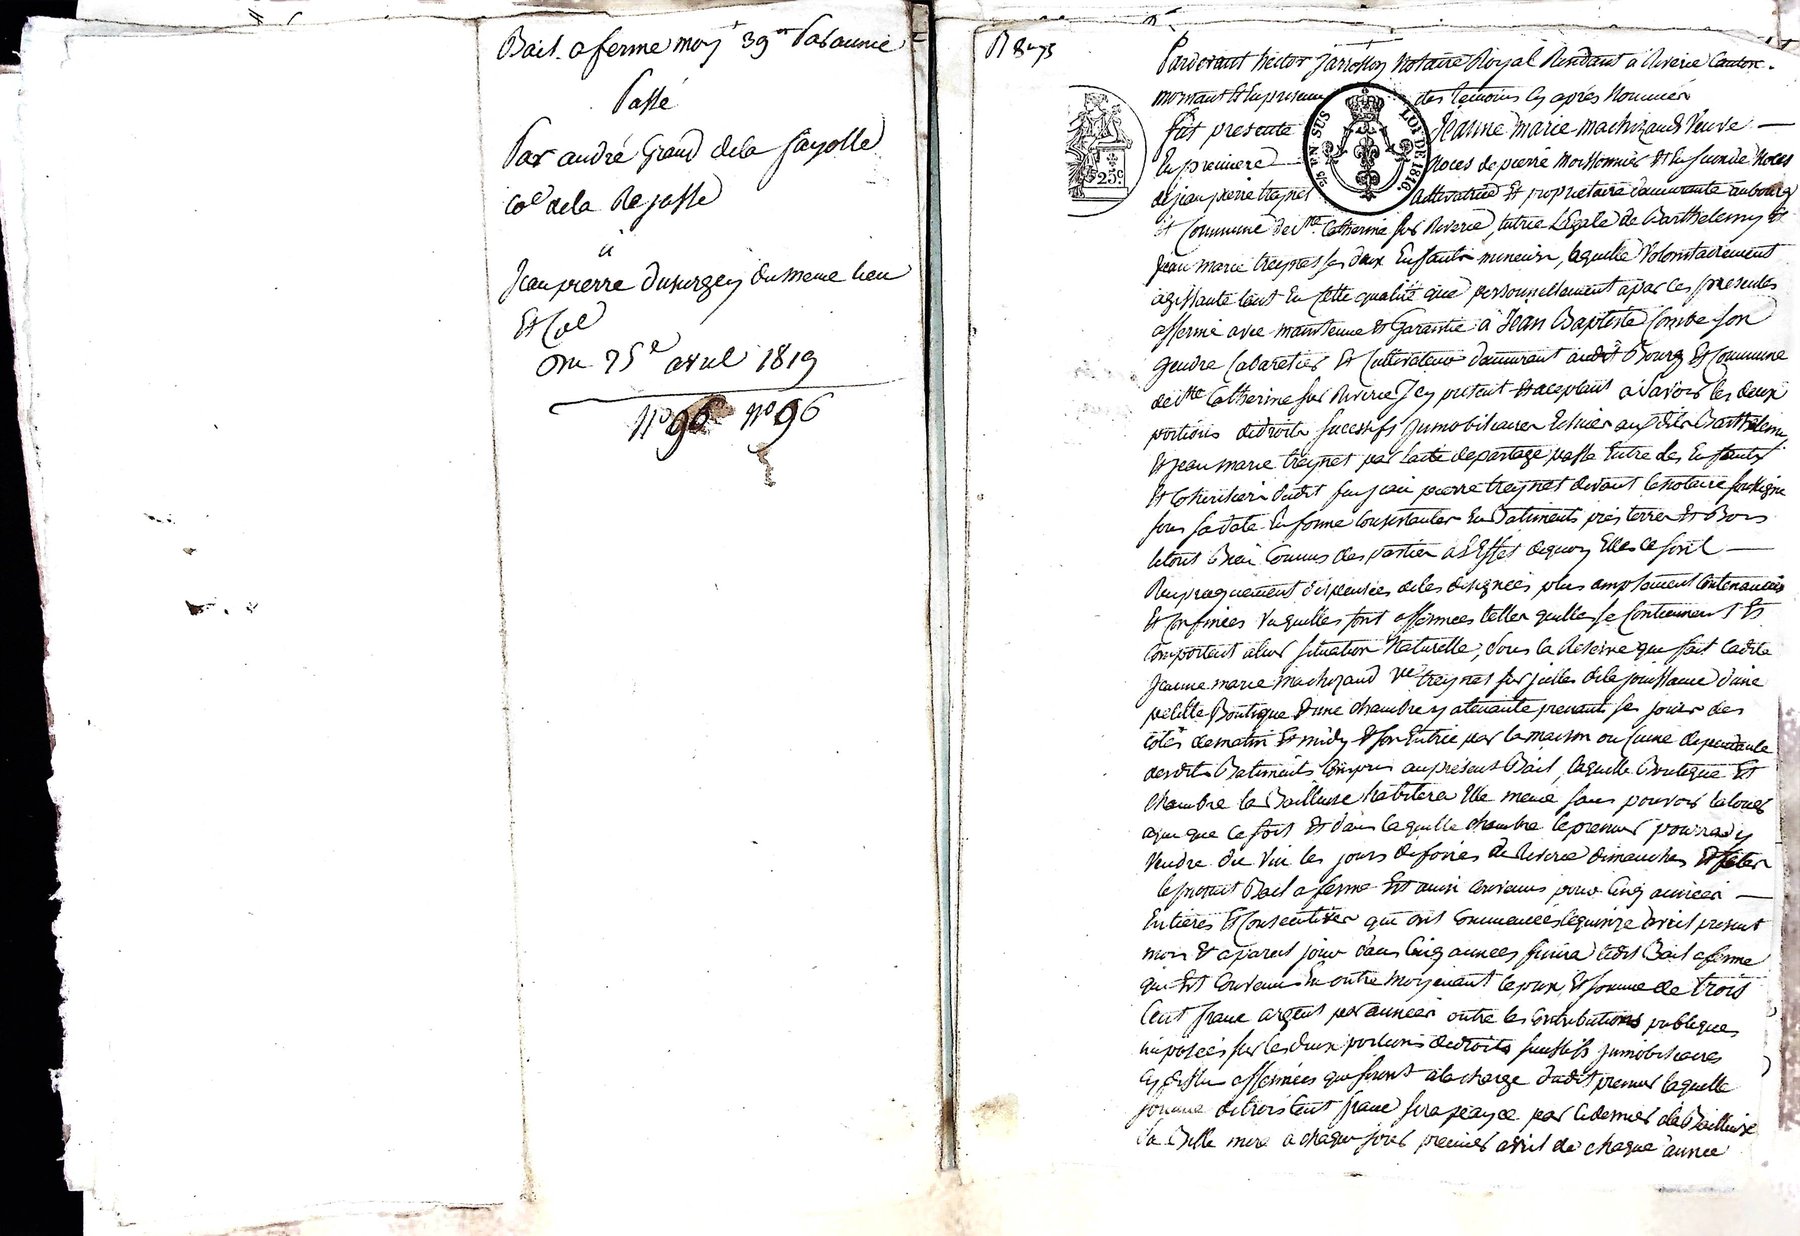 Bail a ferme moy.t 39 fr par année
Passé
Par andré Grand dela fayolle
Co.e dela Rajasse
à
Jean pierre dusurgey du meme lieu
Et Co.e
Du 25e avril 1819
N° 96 N° 96
R 8 75
Pardevant hector Jarrosson Notaire Royal Résidant à Riverie Canton
mornant Et En presence des temoins Cy après Nommés
fut presente Jeanne marie machizaud Veuve
En premiere Noces de pierre moissonnier Et En seconde Noces
de jean pierre treynet Cultivatrice Et proprietaire demeurante au bourg
Et Commune de Ste. Catherine sur Riverie, tutrice Légale de Barthelemy Et
Jean marie treynet ses deux Enfants mineurs, laquelle Volontairement
agissante tant En cette qualité que personnellement a par ces presentes
affermé avec maintenue Et Garantie à Jean Baptiste Combe son
gendre Cabaretier Et Cultivateur demeurant audit Bourg Et Commune
de Ste Catherine sur Riverie Icy present Et aceptant a Savoir les deux
portions de droits sucessifs jmmobiliaires Echues auxdits Barthelemy
Et jean marie treynet par l'acte de partage passé Entre les Enfants
Et Coheritiers dudit feu jean pierre treynet devant le Notaire soussigné
sous sa date En forme Consistantes En Batiments prés terres Et Bois
le tout Bien Connus des parties a l'Effet de quoy Elles se sont
Reciproquement dispensées de les designées plus amplement Contenancées
Et Confinées lesquelles sont affermées telles quelles se Contiennent Et
Comportent a leur situation Naturelle, sous la Reserve que fait ladite
Jeanne marie machizaud Ve treynet sur jcelles de la jouissance d'une
petitte Boutique Et une chambre y atenante prenant ses jours des
côtés de matin Et midy Et son Entrée par la maison ou Cuine dependante
desdits Batiments Compris au present Bail, laquelle Boutique Et
chambre la Bailleuse habitera Elle meme sans pouvoir la louer
a qui que ce soit Et dans laquelle chambre le preneur pourra y
Vendre du Vin les jours de foires de Riverie dimanches Et fêtes
le present Bail a ferme Est ainsi Convenus pour Cinq années
Entieres Et Consecutives qui ont Commencées le quinze avril present
mois Et a pareil jour dans Cinq années finira ledit Bail a ferme
qui Est Convenus En outre moyenant le prix Et somme de trois
Cent franc argent par années outre les Contributions publiques
imposées sur les deux portions de droits sucessifs jmmobiliaires
Cy dessus affermées qui seront à la charge dudit preneur laquelle
somme de trois Cent franc sera payée par ce dernier à la Bailleuse
sa Belle mere a chaque jour premier avril de chaque année
25c.
LOI DE 1816
EN SUS